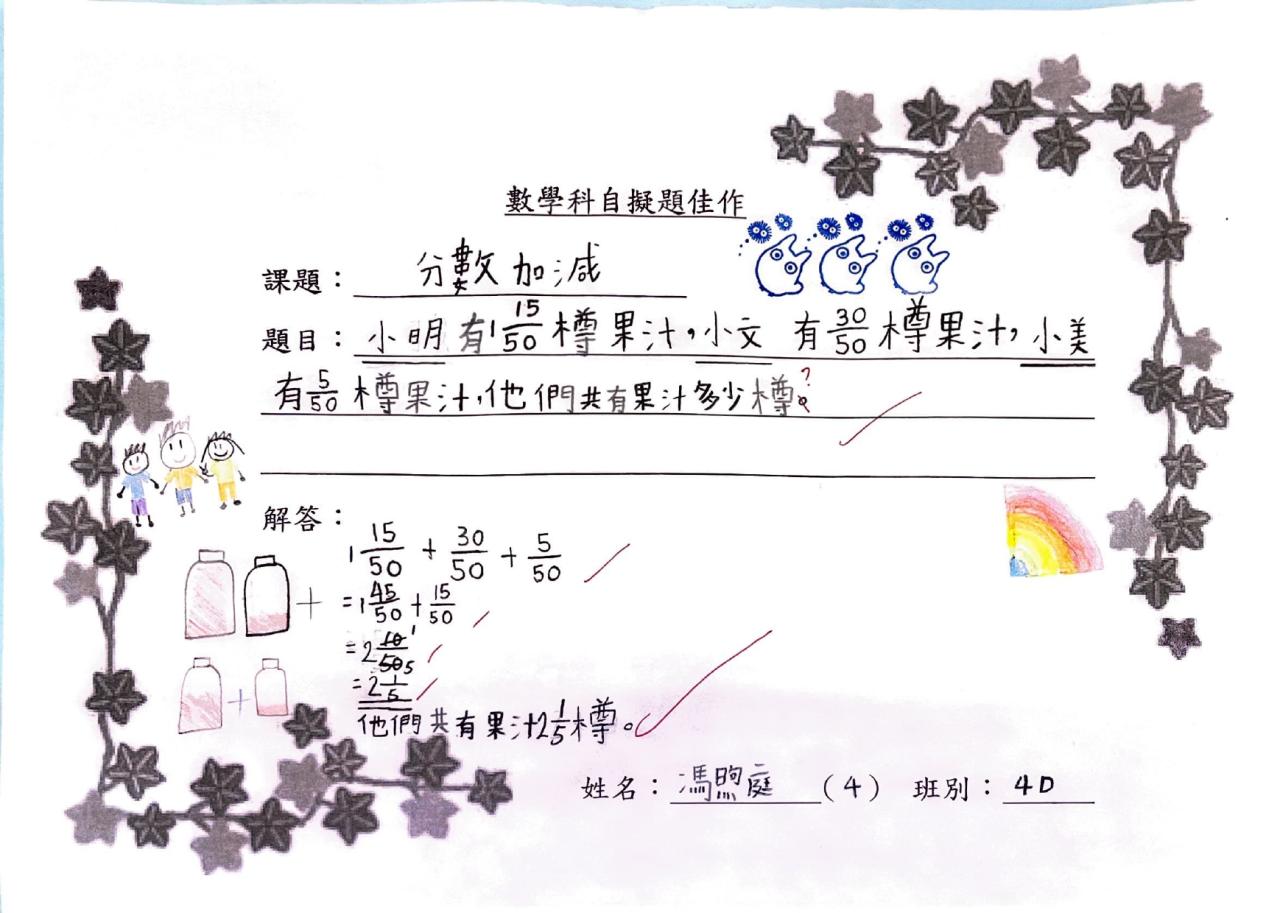 數學科自擬題佳作
課題：分數加減
題目：小明有1 15/50 樽果汁，小文 有 30/50 樽果汁，小美
有 5/50 樽果汁，他們共有果汁多少樽？
解答：
1 15/50 + 30/50 + 5/50
=1 45/50 + 15/50
=2 10/50 1 5
=2 1/5
他們共有果汁2 1/5 樽。
姓名：馮煦庭 （4） 班別：4D